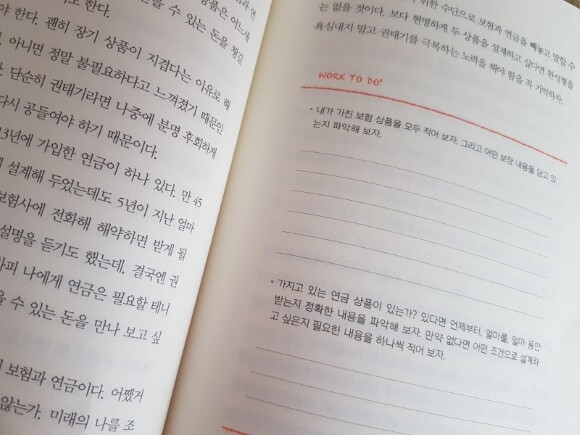 상품은 어느새
수 있는 돈을 챙길
야 한다. 괜히 장기 상품이 지겹다는 이유로 해
아니면 정말 불필요하다고 느껴졌기 때문인
단순히 권태기라면 나중에 분명 후회하게
다시 공들여야 하기 때문이다.
3년에 가입한 연금이 하나 있다. 만 45
설계해 두었는데도 5년이 지난 얼마
보험사에 전화해 해약하면 받게 될
설명을 듣기도 했는데, 결국엔 권
나에게 연금은 필요할 테니
수 있는 돈을 만나 보고 싶
보험과 연금이다. 어쨌거
않는가. 미래의 나를 조
위한 수단으로 보험과 연금을 빼놓고 말할 수
는 없을 것이다. 보다 현명하게 두 상품을 설계하고 싶다면 완성형을
욕심내지 말고 권태기를 극복하는 노력을 해야 함을 꼭 기억하자.
WORK TO DO!
• 내가 가진 보험 상품을 모두 적어 보자. 그리고 어떤 보장 내용을 담고 있
는지 파악해 보자.
• 가지고 있는 연금 상품이 있는가? 있다면 언제부터, 얼마를, 얼마 동안
받는지 정확한 내용을 파악해 보자. 만약 없다면 어떤 조건으로 설계하
고 싶은지 필요한 내용을 하나씩 적어 보자.